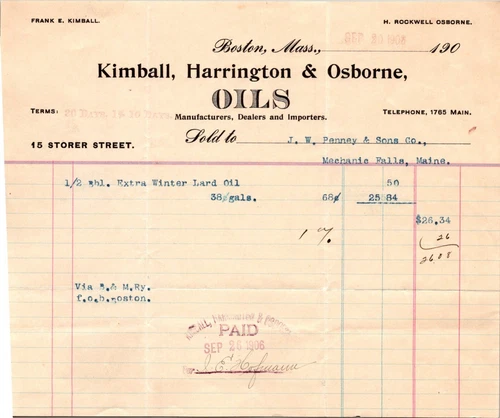 FRANK E. KIMBALL. H. ROCKWELL OSBORNE.
Boston, Mass., SEP 20 190
Kimball, Harrington & Osborne,
OILS
Manufacturers, Dealers and Importers.
TERMS: DAYS, 1% 10 DAYS. TELEPHONE, 1765 MAIN.
Sold to J. W. Penney & Sons Co.,
15 STORER STREET.
Mechanic Falls, Maine.
1/2 bbl. Extra Winter Lard Oil 50
38 gals. 68¢ 25 84
$26.34
1 % 26
26 08
Via B.& M.Ry.
f.o.b.Boston.
KIMBALL, HARRINGTON & OSBORNE
PAID
SEP 26 1906